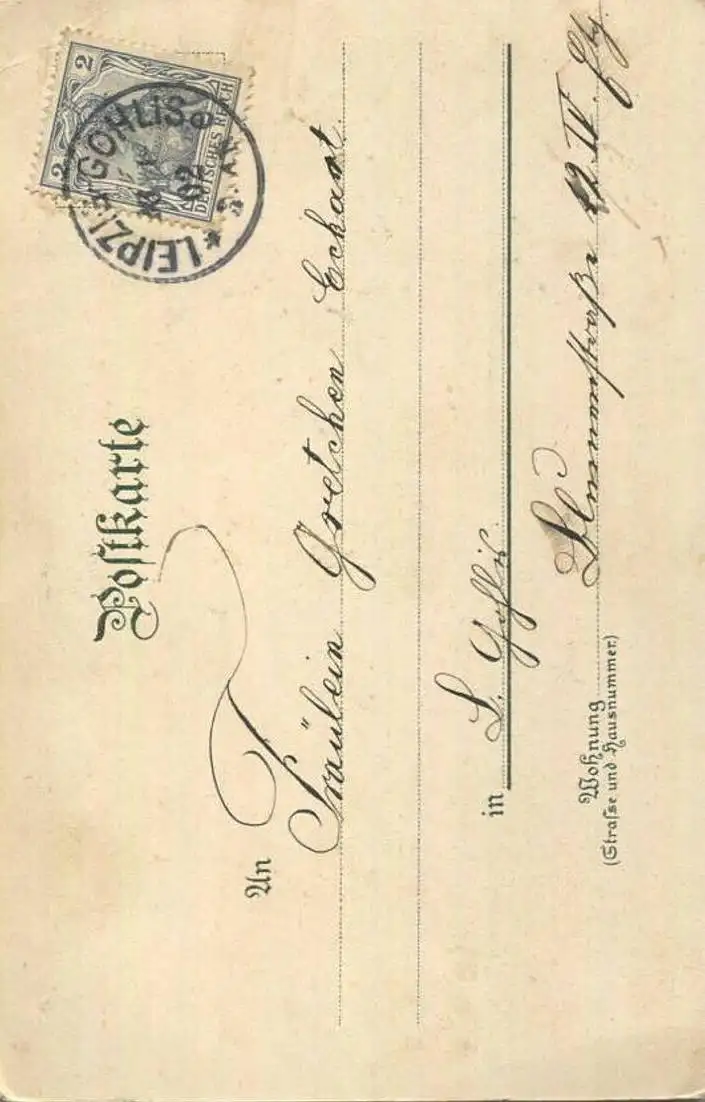 Postkarte
2 2
DEUTSCHES REICH
LEIPZIG-GOHLIS e
02
An Fräulein Gretchen Eckart
in L. Gohlis
Wohnung Blumenstraße 12 IV.
(Straſse und Hausnummer.)